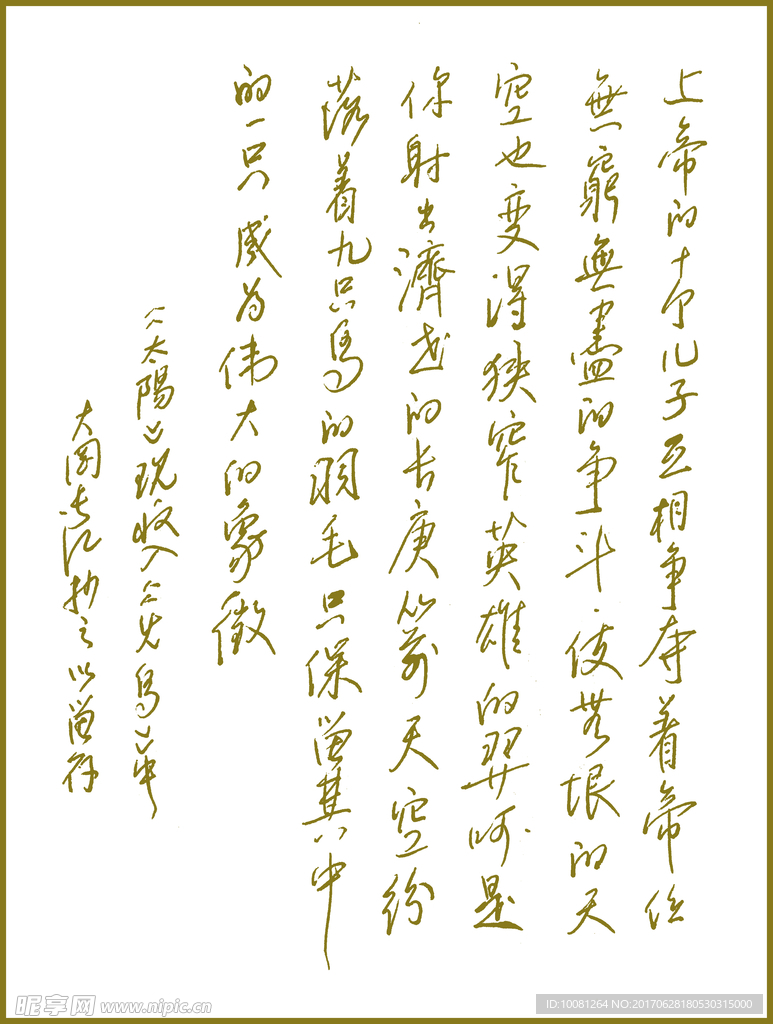 上帝的十个儿子互相争夺着帝位
無窮無盡的争斗.使無垠的天
空也变得狭窄英雄的羿呵是
你射出濟世的长庚箭天空纷
落着九只鸟的羽毛只保留其中
的一只成为伟大的象徵
《太陽》现收入《火鸟》中
抄之以留存
昵享网 www.nipic.cn
ID:10081264 NO:20170628180530315000